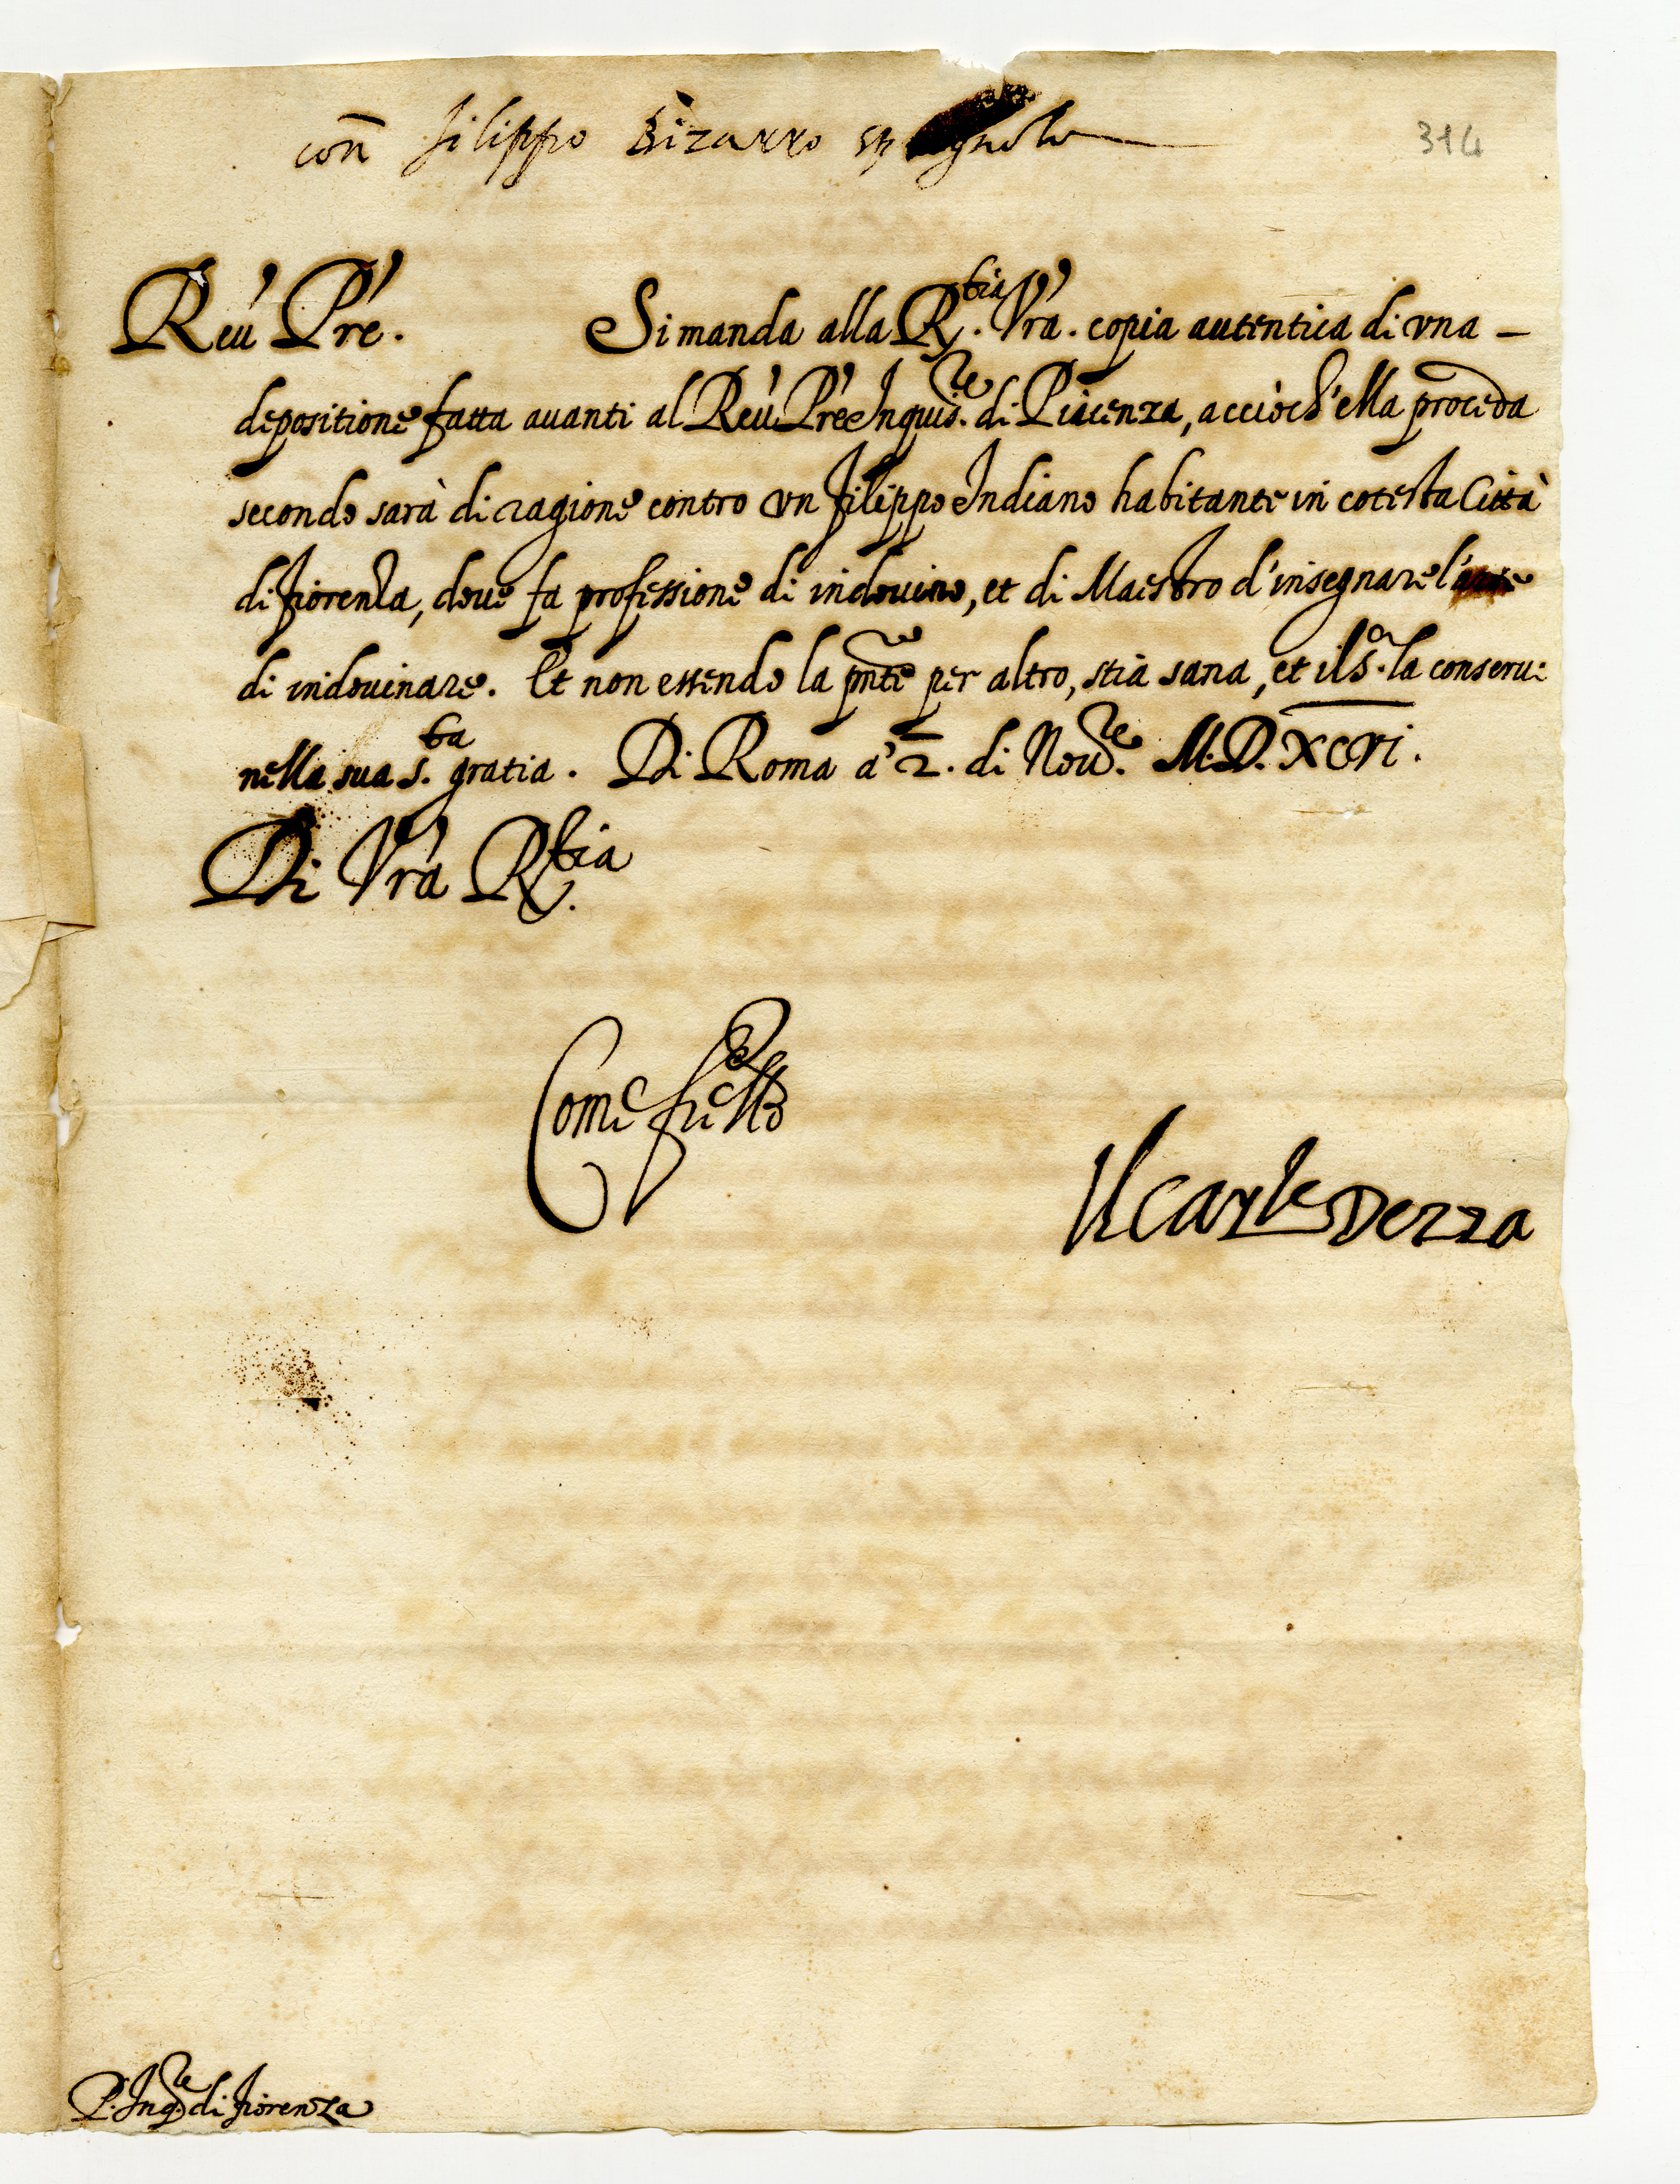 con̄ filippo Bizarro spagnolo
314
Reu' Pre'.   Si manda alla R.tia Vra'. copia autentica di vna –
depositione fatta auanti al Reu' Pre' Inquis.re di Piacenza, acciòch'ella proceda
secondo sarà di ragione contro vn filippo Indiano habitante in cotesta Città
di fiorenza, doue fa professione di indouino, et di Maestro d'insegnare l'arte
di indouinare. Et non essendo la pn̄te per altro, stia sana, et il S.r la conserui
nella sua s.ta gratia. Di Roma a' 2. di Nou.re M.D.XCVI.
Di Vra' R.tia
Come fr̄ello
Il Car.le Dezza
P. Inq.re di fiorenza